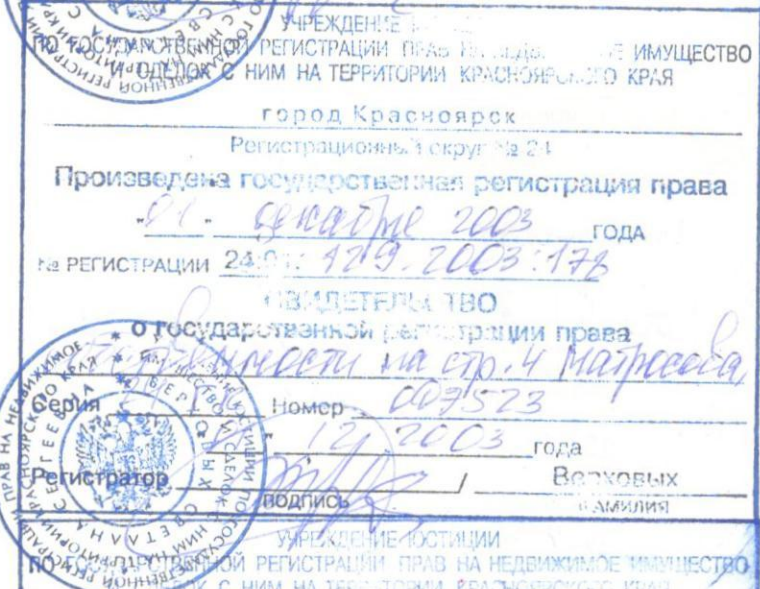 УЧРЕЖДЕНИЕ
ПО ГОСУДАРСТВЕННОЙ РЕГИСТРАЦИИ ПРАВ НА НЕДВ ЕЕ ИМУЩЕСТВО
И СДЕЛОК С НИМ НА ТЕРРИТОРИИ КРАСНОЯРСКОГО КРАЯ
город Красноярск
Регистрационный округ № 24
Произведена государственная регистрация права
"01" декабря 2003 ГОДА
№ РЕГИСТРАЦИИ 24:01: 129.2003:178
СВИДЕТЕЛЬСТВО
о государственной регистрации права
собственности на стр. 4 Матросова,
Серия Номер 007523
12 2003 года
Регистратор / Верховых
подпись ФАМИЛИЯ
УЧРЕЖДЕНИЕ ЮСТИЦИИ
ПО ГОСУДАРСТВЕННОЙ РЕГИСТРАЦИИ ПРАВ НА НЕДВИЖИМОЕ ИМУЩЕСТВО
СДЕЛОК С НИМ НА ТЕРРИТОРИИ КРАСНОЯРСКОГО КРАЯ